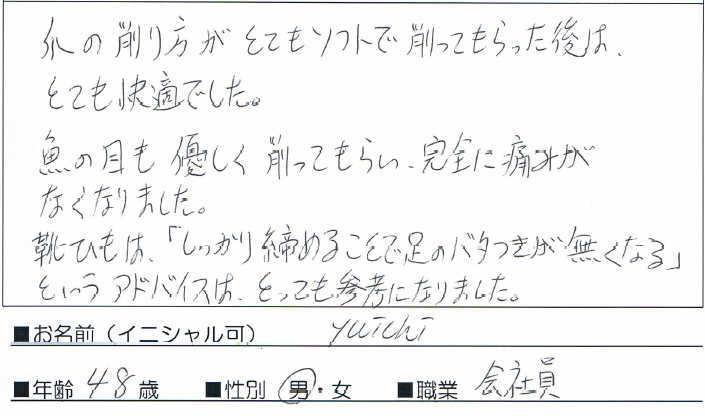 爪の削り方がとてもソフトで削ってもらった後は、
とても快適でした。
魚の目も優しく削ってもらい、完全に痛みが
なくなりました。
靴ひもは、「しっかり締めることで足のバタつきが無くなる」
というアドバイスは、とっても参考になりました。
■お名前（イニシャル可） yuichi
■年齢 48歳 ■性別 男・女 ■職業 会社員